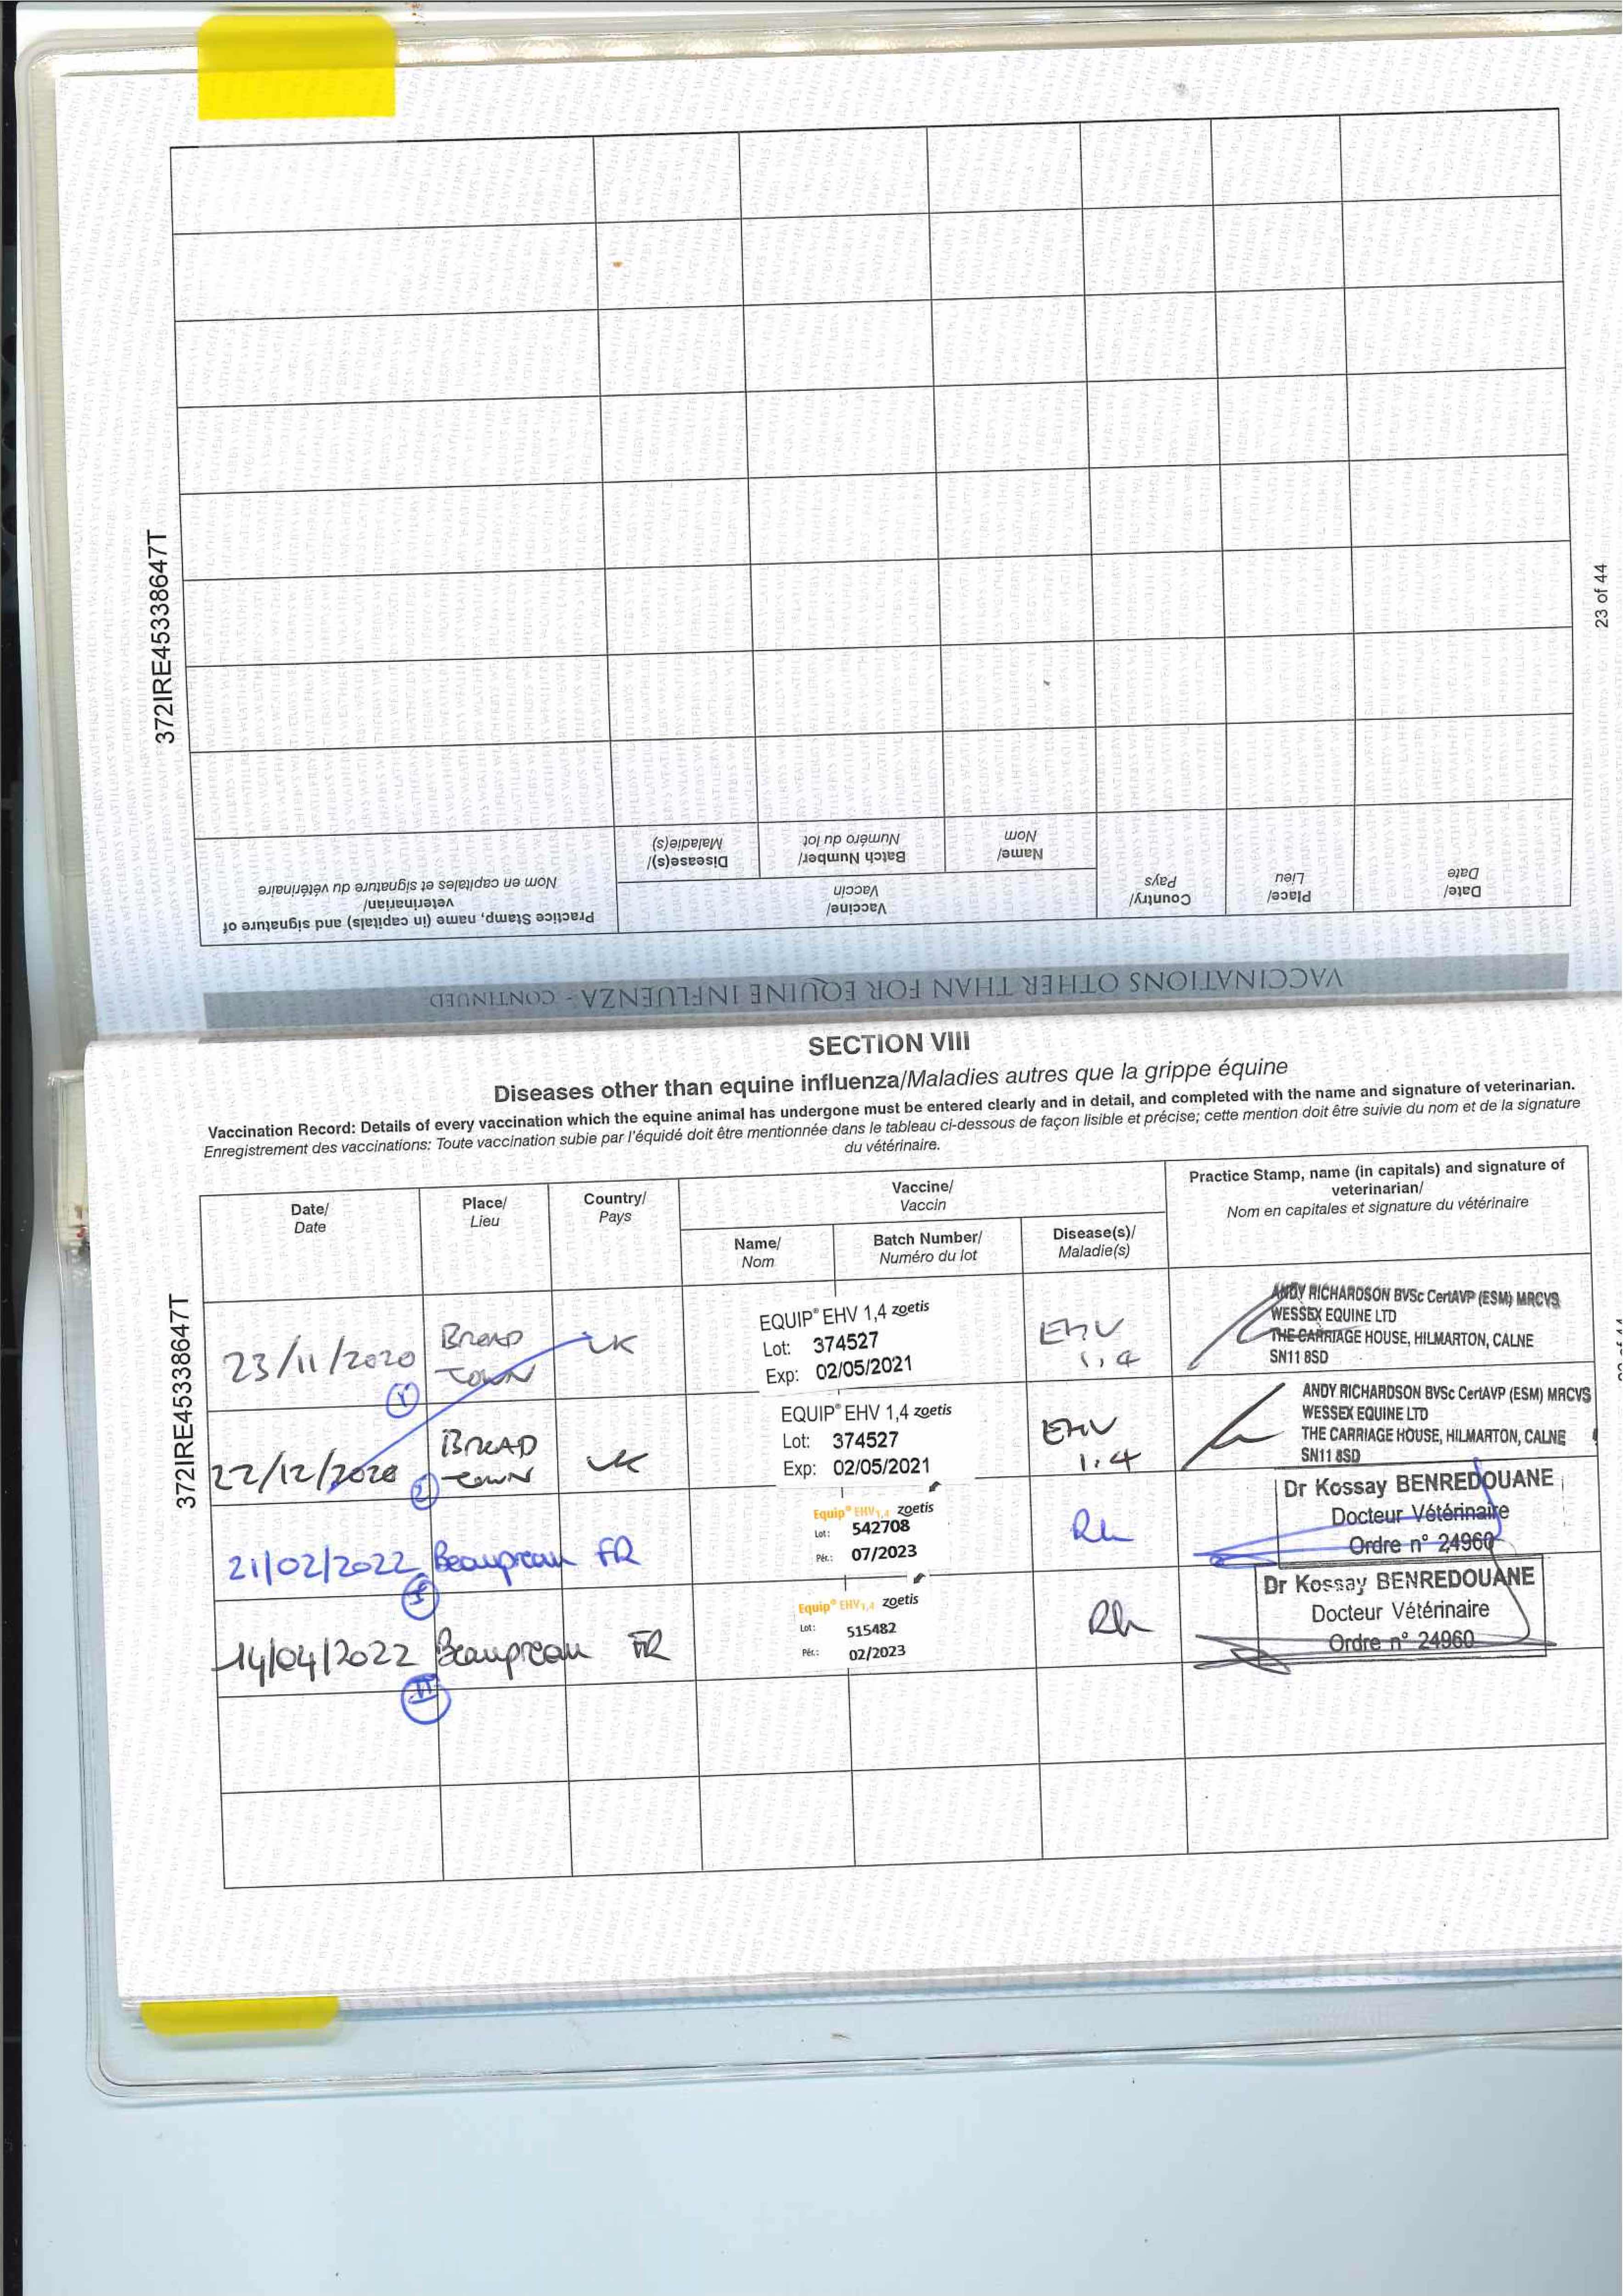 372IRE45338647T
23 of 44
Practice Stamp, name (in capitals) and signature of
veterinarian/
Nom en capitales et signature du vétérinaire
Vaccine/
Vaccin
Disease(s)/
Maladie(s)
Batch Number/
Numéro du lot
Name/
Nom
Country/
Pays
Place/
Lieu
Date/
Date
VACCINATIONS OTHER THAN FOR EQUINE INFLUENZA - CONTINUED
SECTION VIII
Diseases other than equine influenza/Maladies autres que la grippe équine
Vaccination Record: Details of every vaccination which the equine animal has undergone must be entered clearly and in detail, and completed with the name and signature of veterinarian.
Enregistrement des vaccinations: Toute vaccination subie par l'équidé doit être mentionnée dans le tableau ci-dessous de façon lisible et précise; cette mention doit être suivie du nom et de la signature
du vétérinaire.
372IRE45338647T
Date/
Date
Place/
Lieu
Country/
Pays
Vaccine/
Vaccin
Name/
Nom
Batch Number/
Numéro du lot
Disease(s)/
Maladie(s)
Practice Stamp, name (in capitals) and signature of
veterinarian/
Nom en capitales et signature du vétérinaire
23/11/2020
BROAD
TOWN
UK
EQUIP® EHV 1,4 zoetis
Lot: 374527
Exp: 02/05/2021
EHV
1,4
ANDY RICHARDSON BVSc CertAVP (ESM) MRCVS
WESSEX EQUINE LTD
THE CARRIAGE HOUSE, HILMARTON, CALNE
SN11 8SD
22/12/2020
BROAD
TOWN
UK
EQUIP® EHV 1,4 zoetis
Lot: 374527
Exp: 02/05/2021
EHV
1.4
ANDY RICHARDSON BVSc CertAVP (ESM) MRCVS
WESSEX EQUINE LTD
THE CARRIAGE HOUSE, HILMARTON, CALNE
SN11 8SD
21/02/2022
Beaupreau
FR
Equip® EHV1,4 zoetis
Lot: 542708
Pér.: 07/2023
Rh
Dr Kossay BENREDOUANE
Docteur Vétérinaire
Ordre n° 24960
14/04/2022
Beaupreau
FR
Equip® EHV1,4 zoetis
Lot: 515482
Pér.: 02/2023
Rh
Dr Kossay BENREDOUANE
Docteur Vétérinaire
Ordre n° 24960
II